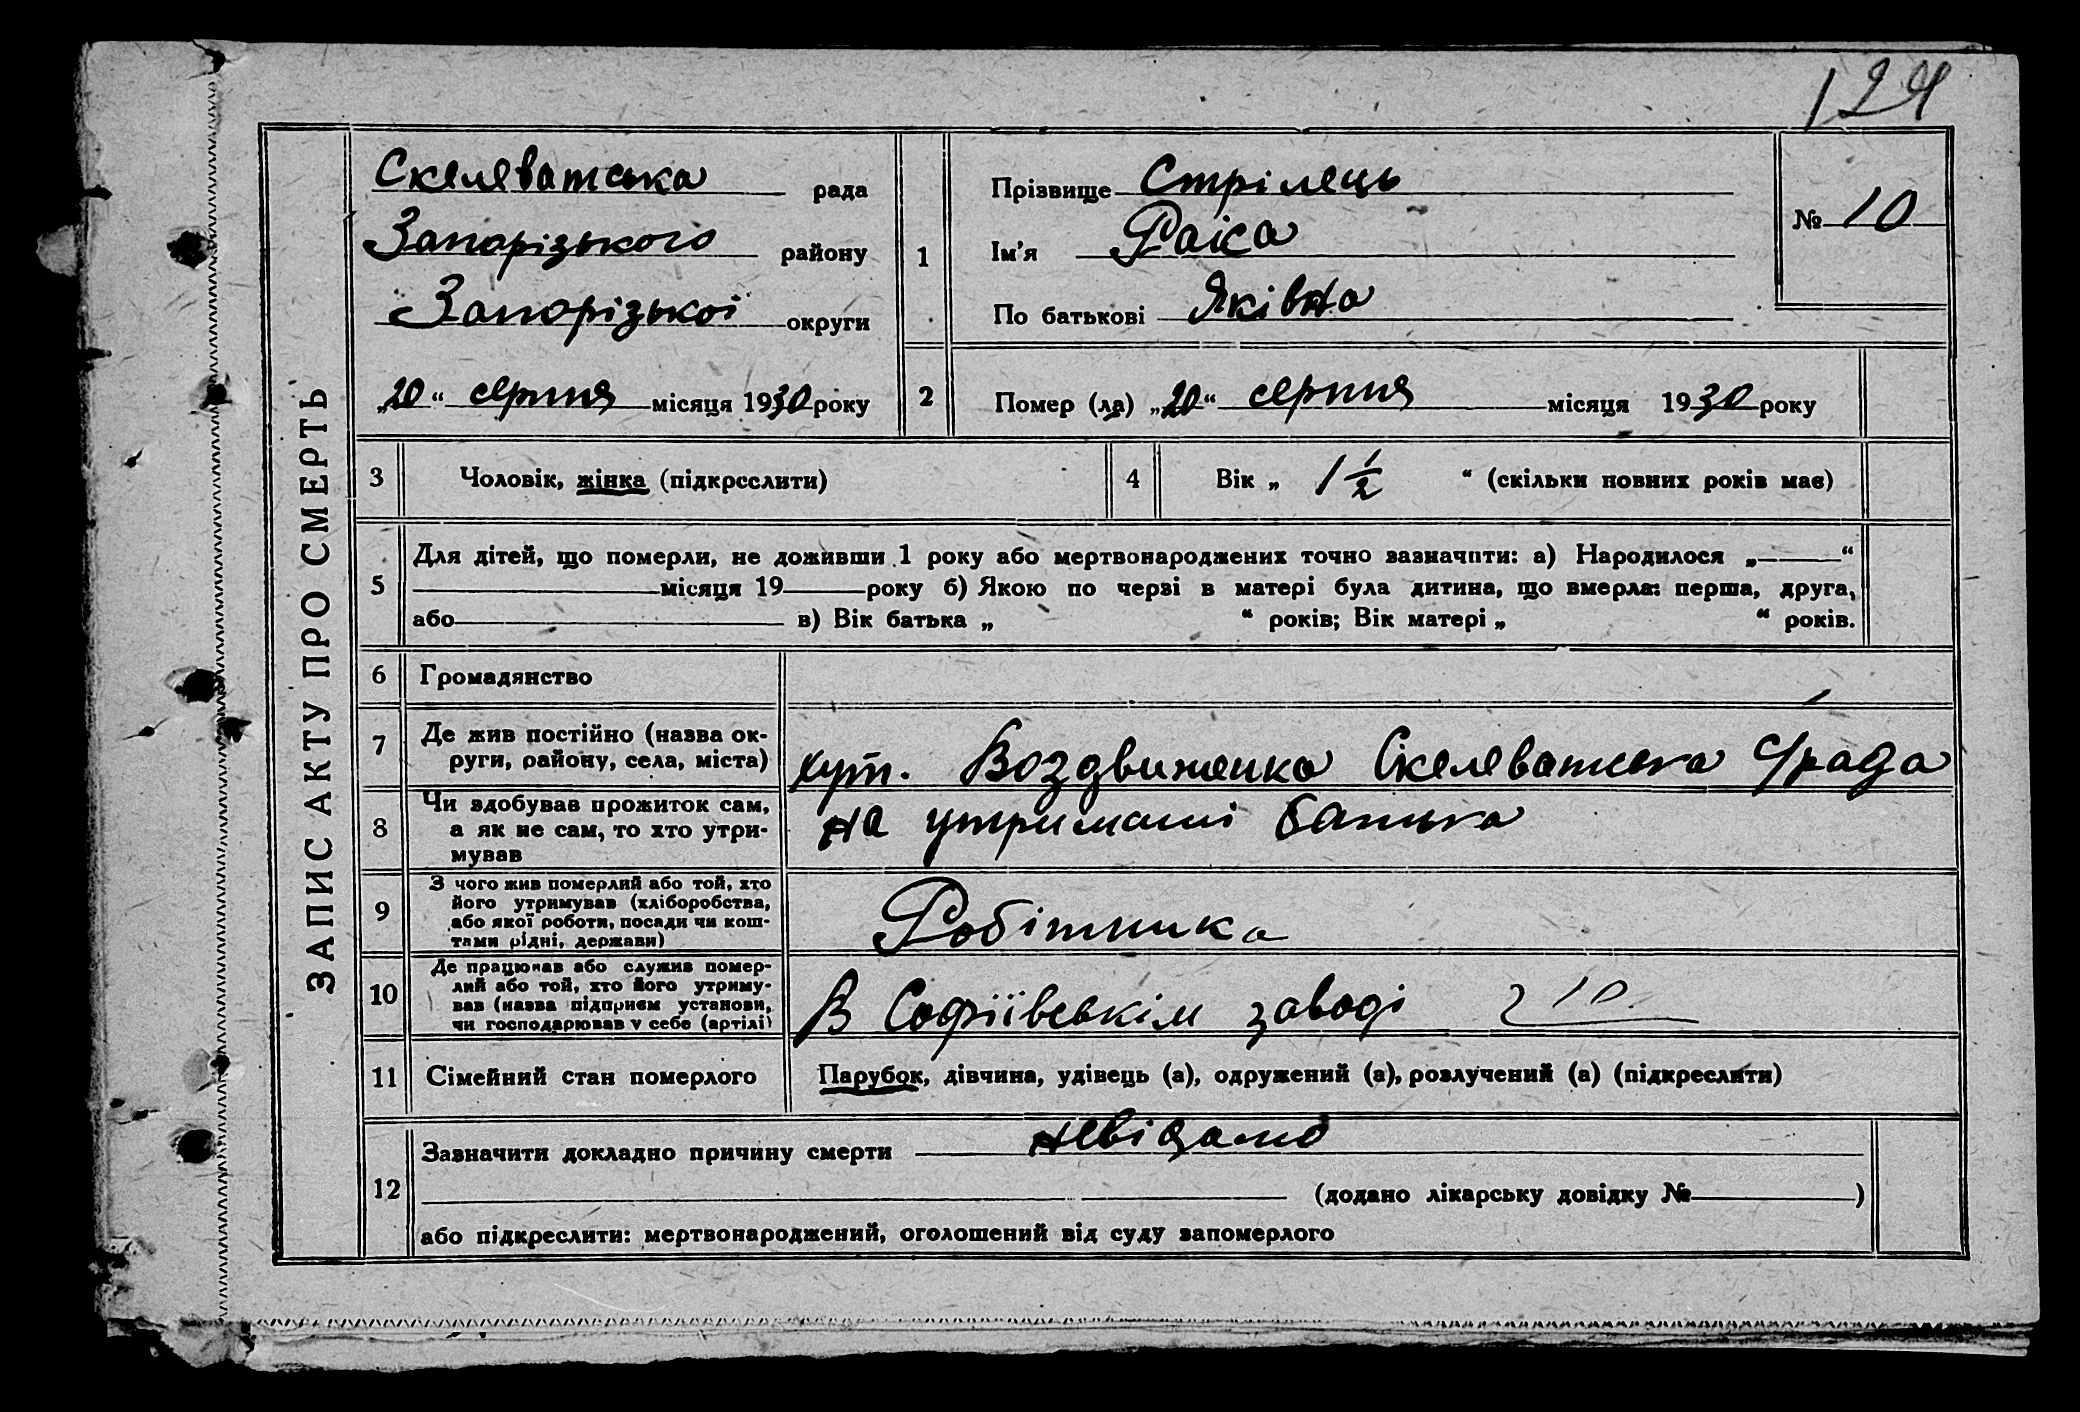 124
ЗАПИС АКТУ ПРО СМЕРТЬ
Скелеватська рада
Запорізького району
Запорізької округи
„20“ серпня місяця 1930 року
1
Прізвище Стрілець
Ім'я Раїса
По батькові Яківна
№ 10
2
Помер (ла) „20“ серпня місяця 1930 року
3
Чоловік, жінка (підкреслити)
4
Вік „ 1 1/2 “ (скільки повних років має)
5
Для дітей, що померли, не доживши 1 року або мертвонароджених точно зазначити: а) Народилося „ “
місяця 19 року б) Якою по черзі в матері була дитина, що вмерла: перша, друга,
або в) Вік батька „ “ років; Вік матері „ “ років.
6
Громадянство
7
Де жив постійно (назва ок-
руги, району, села, міста)
хут. Воздвиженка Скелеватська с/рада
8
Чи здобував прожиток сам,
а як не сам, то хто утри-
мував
на утриманні батька
9
З чого жив померлий або той, хто
його утримував (хліборобства,
або якої роботи, посади чи кош-
тами рідні, держави)
Робітника
10
Де працював або служив помер-
лий або той, хто його утриму-
вав (назва підприєм установи,
чи господарював у себе (артілі)
В Софіївськім заводі 210
11
Сімейний стан померлого
Парубок, дівчина, удівець (а), одружений (а), розлучений (а) (підкреслити)
12
Зазначити докладно причину смерти невідамо
(додано лікарську довідку № )
або підкреслити: мертвонароджений, оголошений від суду запомерлого